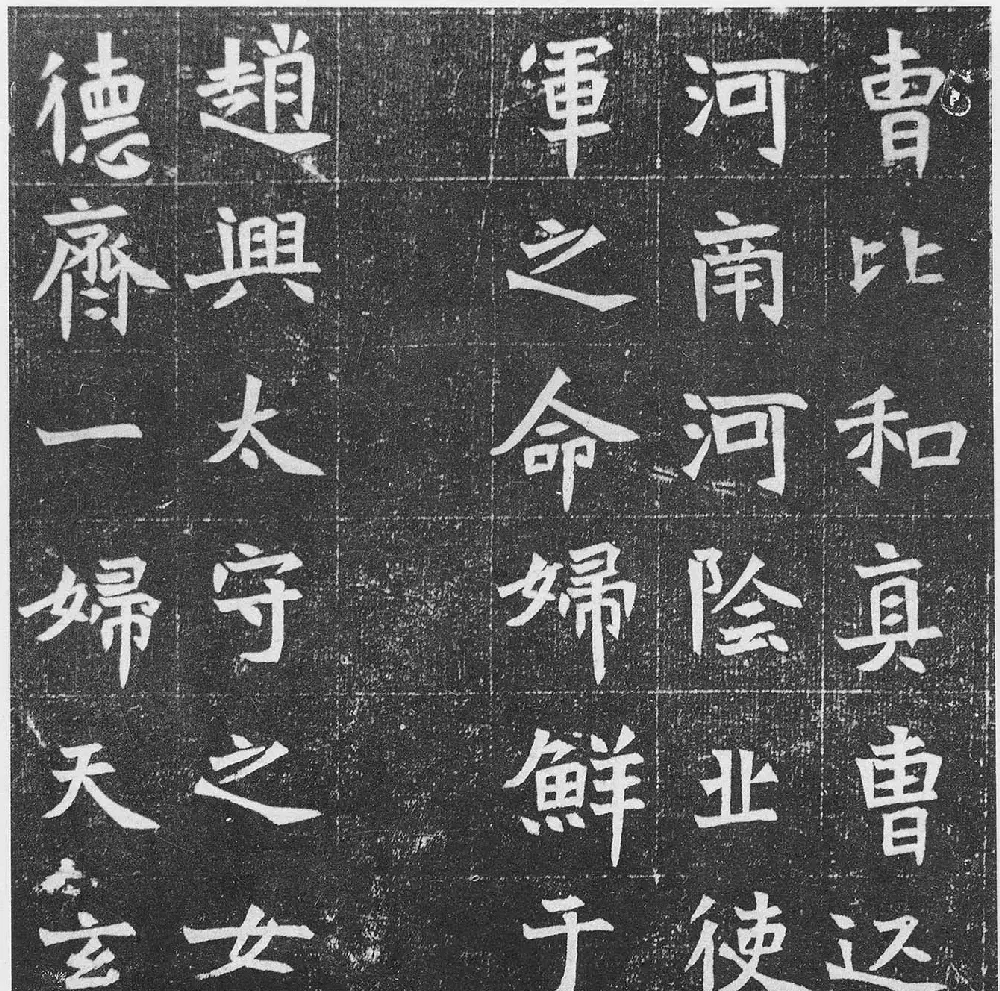 曺比和真曺
河南河陰北使
軍之命婦鮮于
趙興太守之女
德齊一婦天玄